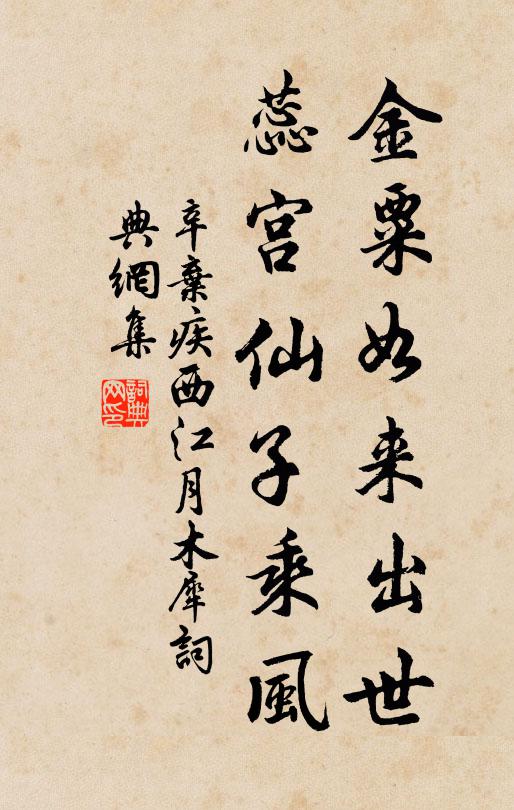 金粟如来出世
蕊宫仙子乘風
辛棄疾西江月木犀詞
典網集
詞典网印